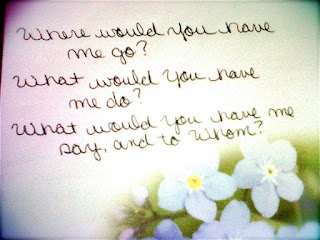 Where would you have
me go?
What would you have
me do?
What would you have me
say, and to whom?